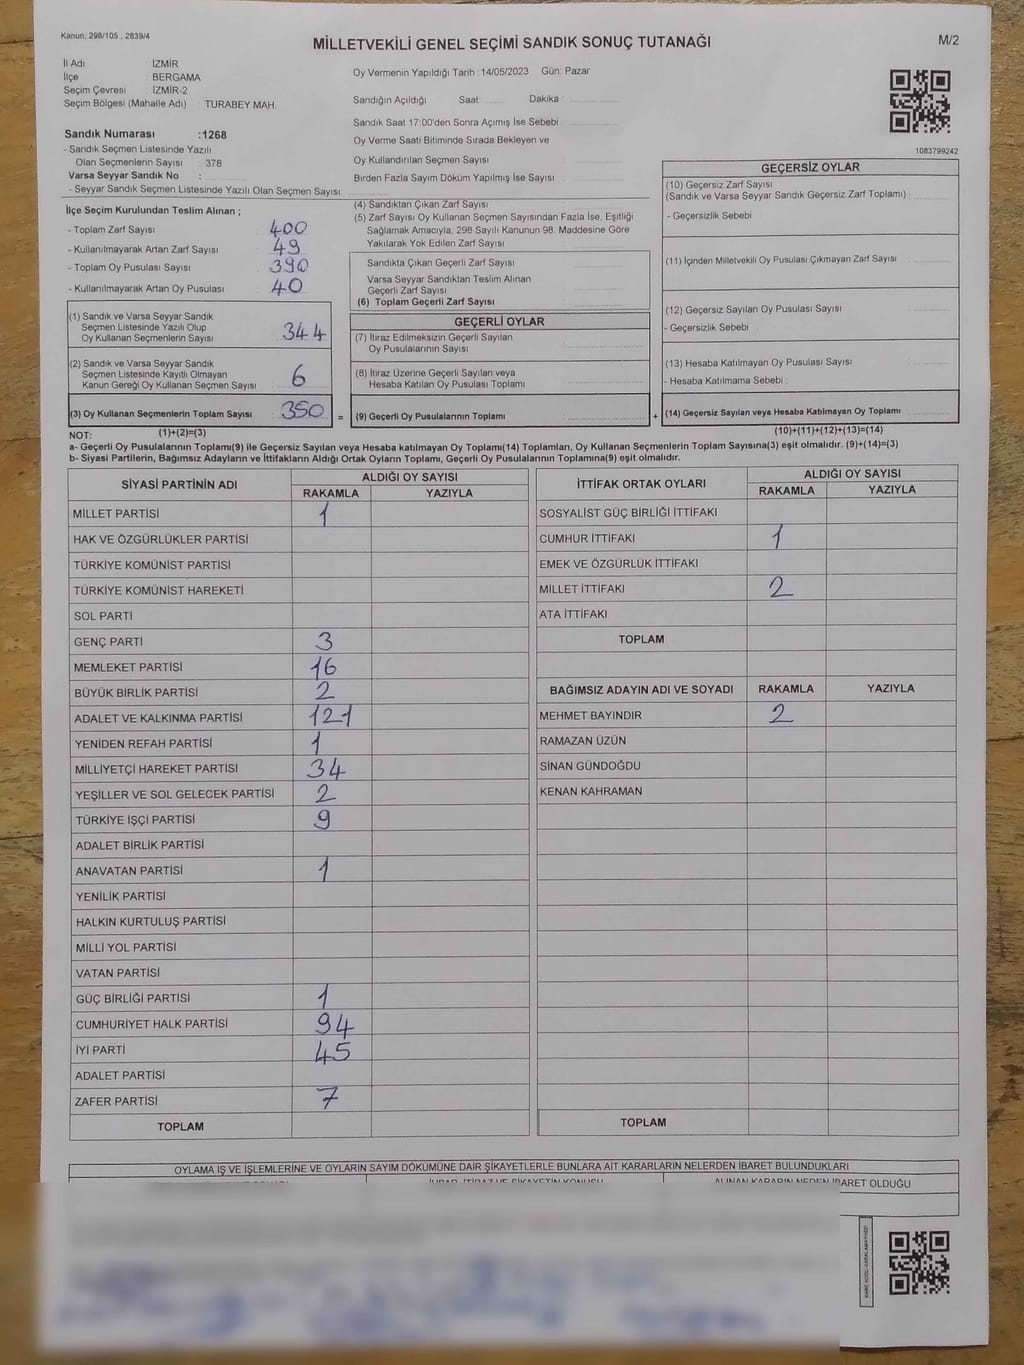 Kanun: 298/105 , 2839/4
MİLLETVEKİLİ GENEL SEÇİMİ SANDIK SONUÇ TUTANAĞI
M/2
İl Adı : İZMİR
İlçe : BERGAMA
Seçim Çevresi : İZMİR-2
Seçim Bölgesi (Mahalle Adı) : TURABEY MAH.
Sandık Numarası :1268
- Sandık Seçmen Listesinde Yazılı
Olan Seçmenlerin Sayısı : 378
Varsa Seyyar Sandık No :
- Seyyar Sandık Seçmen Listesinde Yazılı Olan Seçmen Sayısı
Oy Vermenin Yapıldığı Tarih :14/05/2023 Gün: Pazar
Sandığın Açıldığı Saat: ....... Dakika : ..............
Sandık Saat 17:00'den Sonra Açımış İse Sebebi :
Oy Verme Saati Bitiminde Sırada Bekleyen ve
Oy Kullandırılan Seçmen Sayısı :
Birden Fazla Sayım Döküm Yapılmış İse Sayısı :
1083799242
İlçe Seçim Kurulundan Teslim Alınan ;
- Toplam Zarf Sayısı : 400
- Kullanılmayarak Artan Zarf Sayısı : 49
- Toplam Oy Pusulası Sayısı : 390
- Kullanılmayarak Artan Oy Pusulası : 40
(1) Sandık ve Varsa Seyyar Sandık
Seçmen Listesinde Yazılı Olup
Oy Kullanan Seçmenlerin Sayısı : 344
(2) Sandık ve Varsa Seyyar Sandık
Seçmen Listesinde Kayıtlı Olmayan
Kanun Gereği Oy Kullanan Seçmen Sayısı : 6
(3) Oy Kullanan Seçmenlerin Toplam Sayısı : 350
(1)+(2)=(3)
(4) Sandıktan Çıkan Zarf Sayısı :
(5) Zarf Sayısı Oy Kullanan Seçmen Sayısından Fazla İse, Eşitliği
Sağlamak Amacıyla, 298 Sayılı Kanunun 98. Maddesine Göre
Yakılarak Yok Edilen Zarf Sayısı :
Sandıkta Çıkan Geçerli Zarf Sayısı :
Varsa Seyyar Sandıktan Teslim Alınan
Geçerli Zarf Sayısı :
(6) Toplam Geçerli Zarf Sayısı :
GEÇERLİ OYLAR
(7) İtiraz Edilmeksizin Geçerli Sayılan
Oy Pusulalarının Sayısı :
(8) İtiraz Üzerine Geçerli Sayılan veya
Hesaba Katılan Oy Pusulası Toplamı :
= (9) Geçerli Oy Pusulalarının Toplamı : +
GEÇERSİZ OYLAR
(10) Geçersiz Zarf Sayısı
(Sandık ve Varsa Seyyar Sandık Geçersiz Zarf Toplamı) :
- Geçersizlik Sebebi :
(11) İçinden Milletvekili Oy Pusulası Çıkmayan Zarf Sayısı :
(12) Geçersiz Sayılan Oy Pusulası Sayısı :
- Geçersizlik Sebebi :
(13) Hesaba Katılmayan Oy Pusulası Sayısı :
- Hesaba Katılmama Sebebi :
(14) Geçersiz Sayılan veya Hesaba Katılmayan Oy Toplamı :
(10)+(11)+(12)+(13)=(14)
NOT:
a- Geçerli Oy Pusulalarının Toplamı(9) ile Geçersiz Sayılan veya Hesaba katılmayan Oy Toplamı(14) Toplamları, Oy Kullanan Seçmenlerin Toplam Sayısına(3) eşit olmalıdır. (9)+(14)=(3)
b- Siyasi Partilerin, Bağımsız Adayların ve İttifakların Aldığı Ortak Oyların Toplamı, Geçerli Oy Pusulalarının Toplamına(9) eşit olmalıdır.
SİYASİ PARTİNİN ADI ALDIĞI OY SAYISI
RAKAMLA YAZIYLA
MİLLET PARTİSİ 1
HAK VE ÖZGÜRLÜKLER PARTİSİ
TÜRKİYE KOMÜNİST PARTİSİ
TÜRKİYE KOMÜNİST HAREKETİ
SOL PARTİ
GENÇ PARTİ 3
MEMLEKET PARTİSİ 16
BÜYÜK BİRLİK PARTİSİ 2
ADALET VE KALKINMA PARTİSİ 121
YENİDEN REFAH PARTİSİ 1
MİLLİYETÇİ HAREKET PARTİSİ 34
YEŞİLLER VE SOL GELECEK PARTİSİ 2
TÜRKİYE İŞÇİ PARTİSİ 9
ADALET BİRLİK PARTİSİ
ANAVATAN PARTİSİ 1
YENİLİK PARTİSİ
HALKIN KURTULUŞ PARTİSİ
MİLLİ YOL PARTİSİ
VATAN PARTİSİ
GÜÇ BİRLİĞİ PARTİSİ 1
CUMHURİYET HALK PARTİSİ 94
İYİ PARTİ 45
ADALET PARTİSİ
ZAFER PARTİSİ 7
TOPLAM
İTTİFAK ORTAK OYLARI ALDIĞI OY SAYISI
RAKAMLA YAZIYLA
SOSYALİST GÜÇ BİRLİĞİ İTTİFAKI
CUMHUR İTTİFAKI 1
EMEK VE ÖZGÜRLÜK İTTİFAKI
MİLLET İTTİFAKI 2
ATA İTTİFAKI
TOPLAM
BAĞIMSIZ ADAYIN ADI VE SOYADI RAKAMLA YAZIYLA
MEHMET BAYINDIR 2
RAMAZAN ÜZÜN
SİNAN GÜNDOĞDU
KENAN KAHRAMAN
TOPLAM
OYLAMA İŞ VE İŞLEMLERİNE VE OYLARIN SAYIM DÖKÜMÜNE DAİR ŞİKAYETLERLE BUNLARA AİT KARARLARIN NELERDEN İBARET BULUNDUKLARI
ALINAN KARARIN NEDEN İBARET OLDUĞU